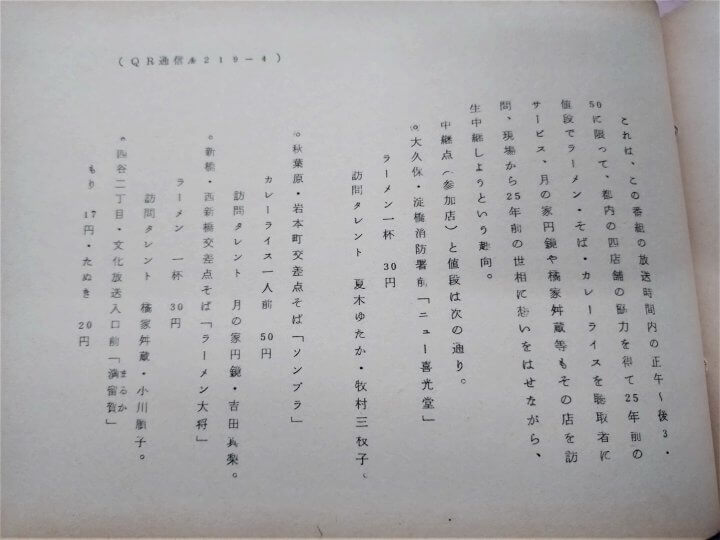 これは、この番組の放送時間内の正午〜後3・
50に限って、都内の四店舗の協力を得て25年前の
値段でラーメン・そば・カレーライスを聴取者に
サービス、月の家円鏡や橘家舛蔵等もその店を訪
問、現場から25年前の世相に想いをはせながら、
生中継しようという趣向。
中継点（参加店）と値段は次の通り。
○大久保・淀橋消防署前「ニュー喜光堂」
ラーメン一杯 30円
訪問タレント 夏木ゆたか・牧村三枝子、
○秋葉原・岩本町交差点そば「ソンブラ」
カレーライス一人前 50円
訪問タレント 月の家円鏡・吉田真梨。
○新橋・西新橋交差点そば「ラーメン大将」
ラーメン 一杯 30円
訪問タレント 橘家舛蔵・小川順子。
○四谷二丁目・文化放送入口前「満留賀」
まるか
もり 17円・たぬき 20円
（QR通信#219-4）